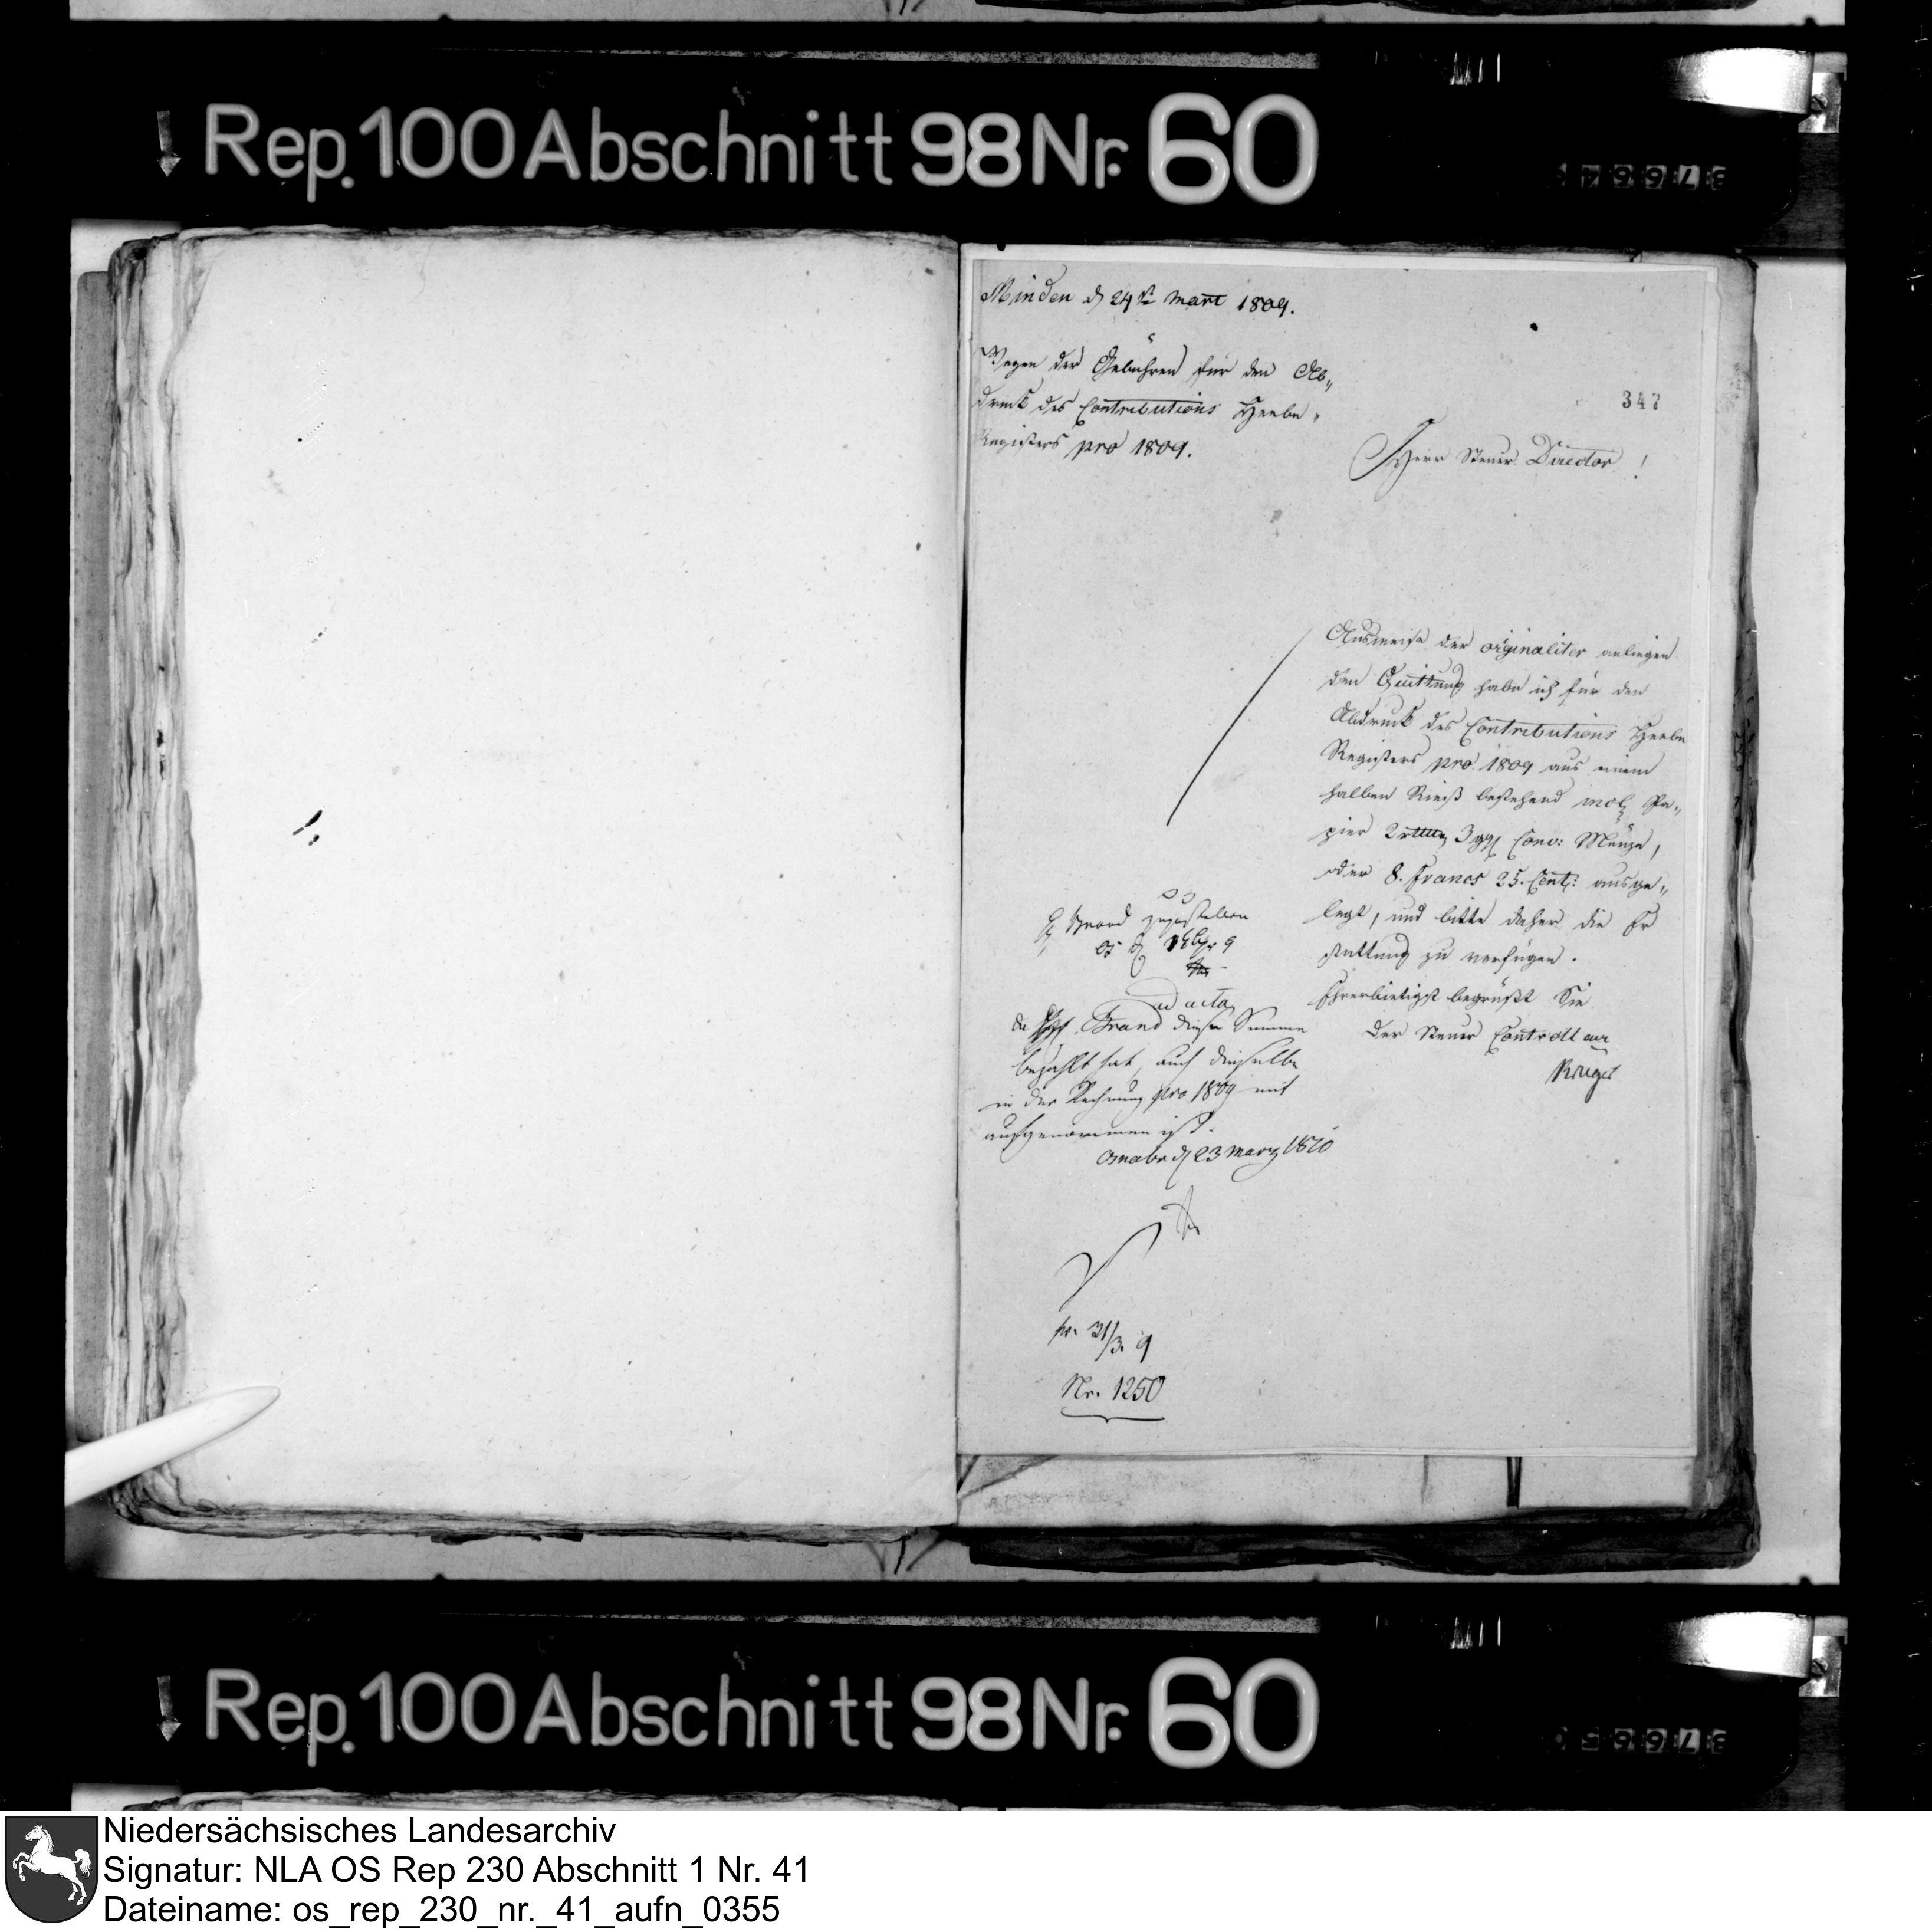 Rep. 100 Abschnitt 98 Nr. 60
Minden d 24t Mart 1809.
Wegen der Gebühren für den Ab„
druck des Contributions Heebe„
Registers pro 1809.
347
Herr Steuer Director!
Ausweise der originaliter anliegen
den Quittung habe ich für den
Abdruck des Contributions Heebe
Registers pro 1809 aus einem
halben Rieß bestehend incl. Pa„
pier 2 rthlr 3 ggl Conv: Münze,
oder 8. Francs 25. Cent: ausge„
legt, und bitte daher die Er
stattung zu verfügen.
Ehrerbietigst begrüßt Sie
Der Steuer Controlleur
Krüger
zuzustellen
9
ad acta,
da Brand diese Summe
bezahlt hat, auch dieselbe
in der Rechnung pro 1809 mit
aufgenommen ist.
Osnabr d 23 März 1810
pr. 31/3. 9
Nr. 1250
Rep. 100 Abschnitt 98 Nr. 60
Niedersächsisches Landesarchiv
Signatur: NLA OS Rep 230 Abschnitt 1 Nr. 41
Dateiname: os_rep_230_nr._41_aufn_0355